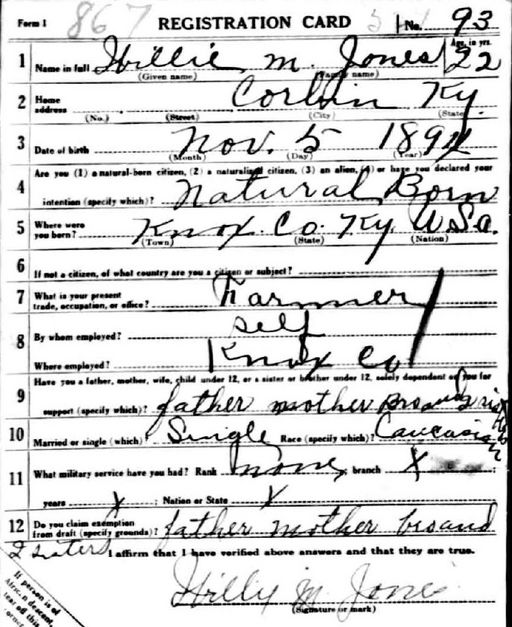 Form 1 867 REGISTRATION CARD 511 No. 93
1 Name in full Willie M. Jones Age, in yrs. 22
(Given name) (Family name)
2 Home address Corbin Ky.
(No.) (Street) (City) (State)
3 Date of birth Nov. 5 1894
(Month) (Day) (Year)
4 Are you (1) a natural-born citizen, (2) a naturalized citizen, (3) an alien, (4) or have you declared your
intention (specify which)? Natural Born
5 Where were you born? Knox Co. Ky. U.S.a.
(Town) (State) (Nation)
6 If not a citizen, of what country are you a citizen or subject?
7 What is your present trade, occupation, or office? Farmer
8 By whom employed? self
Where employed? Knox Co
9 Have you a father, mother, wife, child under 12, or a sister or brother under 12, solely dependent on you for
support (specify which)? father mother Bro and
10 Married or single (which)? Single Race (specify which)? Caucasian
11 What military service have you had? Rank none; branch X
years X; Nation or State X
12 Do you claim exemption from draft (specify grounds)? father mother bro and
2 sisters I affirm that I have verified above answers and that they are true.
Willy M. Jones
(Signature or mark)
If person is of
African descent,
tear off this
corner